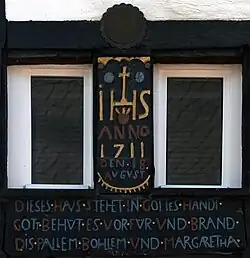 IHS
ANNO
1711
DEN 18
AUGUST
DIESES·HAUS·STEHET·IN·GOTTES·HANDT·
GOT·BEHUT·ES·VOR·FUR·UND·BRAND·
BOHLEM·UND·MARGARETHA·